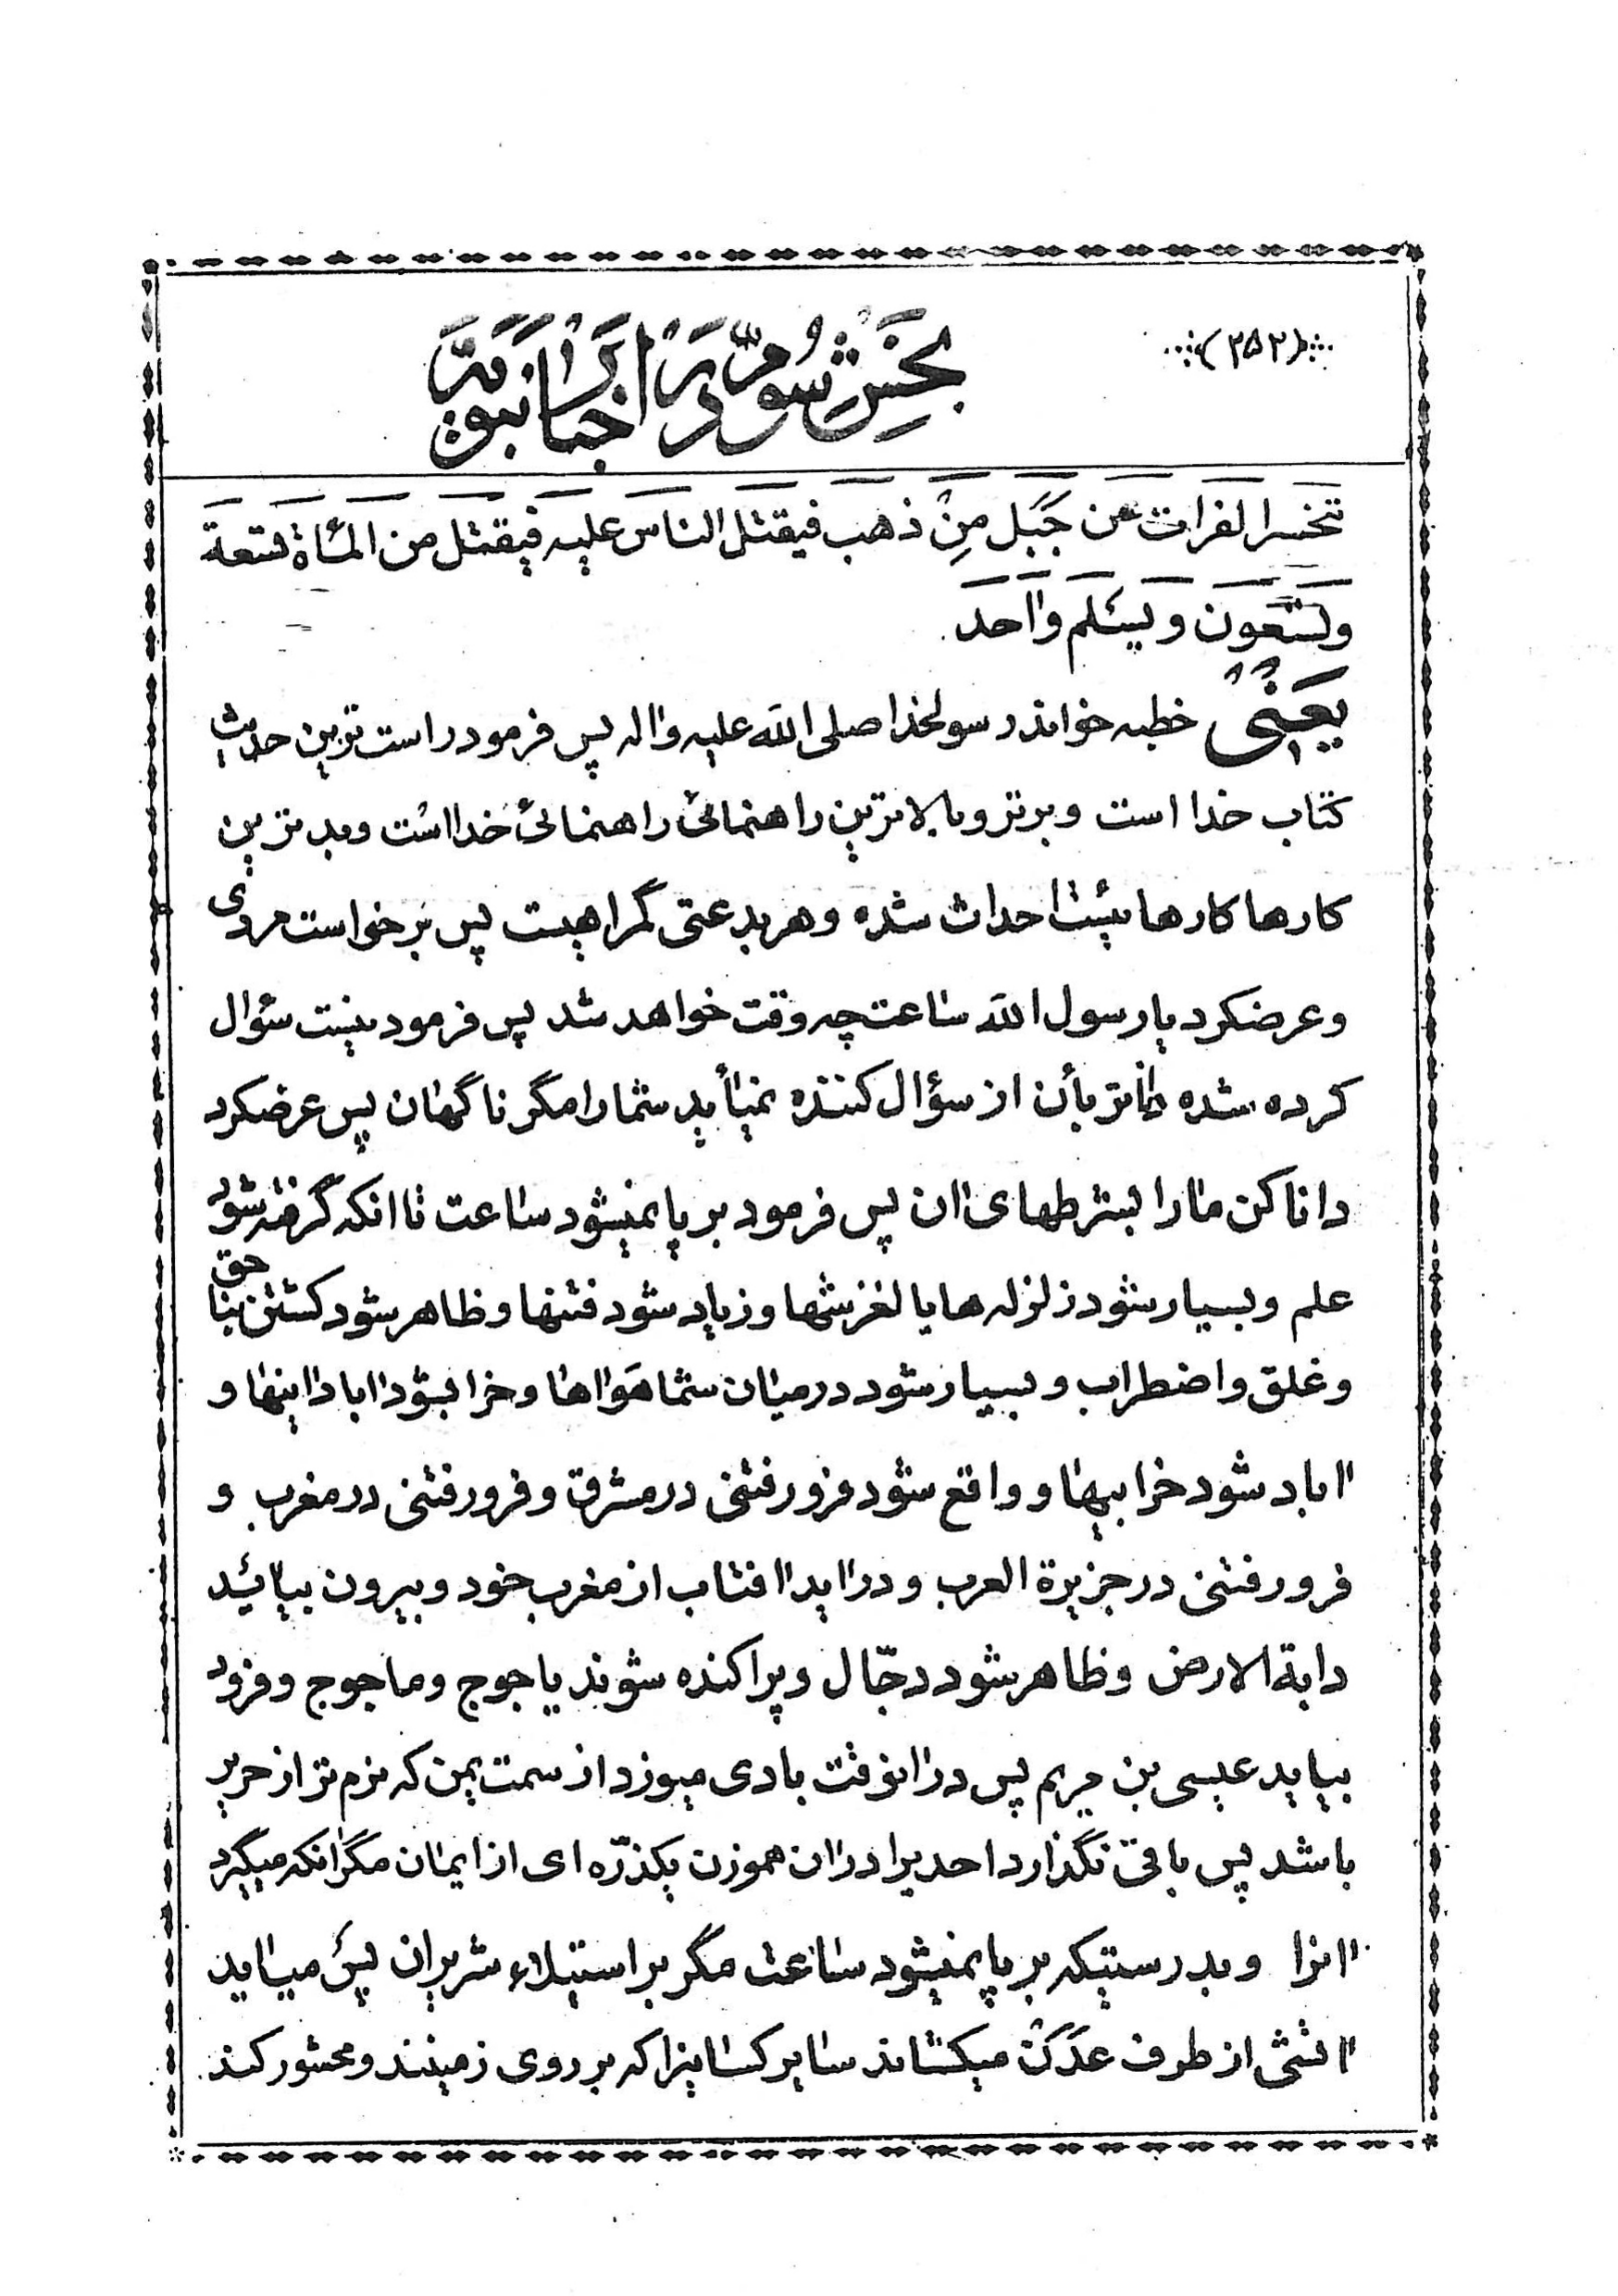 (۲۵۲)
بخش سوم در اخبار نبویه
تنحسر الفرات عن جبل من ذهب فیقتل الناس علیه فیقتل من المأة تسعة
وتسعون ویسلم واحد
یعنی خطبه خواند رسولخدا صلی الله علیه واله پس فرمود راست ترین حدیث
کتاب خدا است وبرتر وبالاترین راهنمائی راهنمائی خدا است وبدترین
کارها کارهائیست احداث شده وهر بدعتی گمراهیست پس برخواست مردی
وعرضکرد یا رسول الله ساعت چه وقت خواهد شد پس فرمود نیست سؤال
کرده شده داناتر بأن از سؤال کننده نمیآید شما را مگر ناگهان پس عرضکرد
دانا کن ما را بشرطهای ان پس فرمود بر پا نمیشود ساعت تا انکه گرفته شود
علم وبسیار شود زلزله ها یا لغزشها وزیاد شود فتنها وظاهر شود کشتن بناحق
وغلق واضطراب وبسیار شود در میان شما هواها وخراب شود ابادانیها و
اباد شود خرابیها و واقع شود فرورفتنی در مشرق وفرورفتنی در مغرب و
فرورفتنی در جزیرة العرب و در اید افتاب از مغرب خود وبیرون بیائید
دابة الارض وظاهر شود دجّال وپراکنده شوند یاجوج وماجوج وفرود
بیاید عیسی بن مریم پس در انوقت بادی میوزد از سمت یمن که نرم تر از حریر
باشد پس باقی نگذارد احدیرا در ان هموزن یکذرّه ای از ایمان مگر انکه میگیرد
انرا وبدرستیکه بر پا نمیشود ساعت مگر بر استیلاء شریران پس میاید
اتشی از طرف عدن میکشاند سایر کسانیرا که بر روی زمینند ومحشور کند